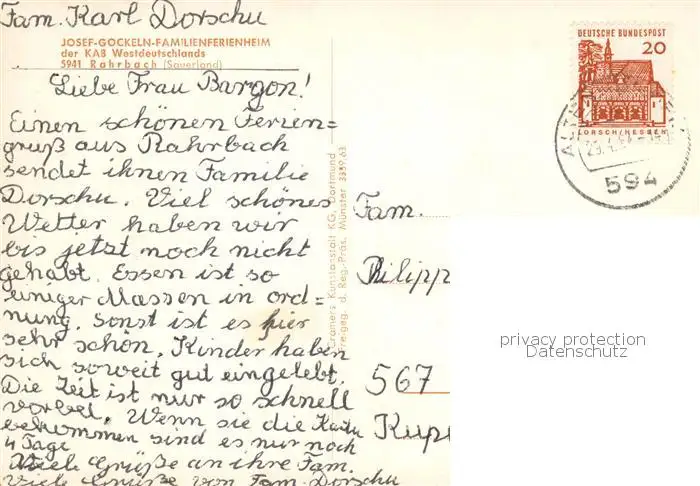 Fam. Karl Dorschu
JOSEF-GOCKELN-FAMILIENFERIENHEIM
der KAB Westdeutschlands
5941 Rahrbach (Sauerland)
Liebe Frau Bargon!
Einen schönen Ferien=
gruß aus Rahrbach
sendet ihnen Familie
Dorschu. Viel schönes
Wetter haben wir
bis jetzt noch nicht
gehabt. Essen ist so
einiger Massen in ord=
nung. Sonst ist es hier
sehr schön. Kinder haben
sich soweit gut eingelebt.
Die Zeit ist nur so schnell
vorbei. Wenn sie die Karte
bekommen sind es nur noch
4 Tage
Viele Grüße an ihre Fam.
Viele Grüße von Fam. Dorschu
Cramers Kunstanstalt KG, Dortmund
Freigeg. d. Reg.-Präs. Münster 3359/63
DEUTSCHE BUNDESPOST
20
LORSCH/HESSEN
594
Fam.
Philipp
567
Kup
privacy protection
Datenschutz